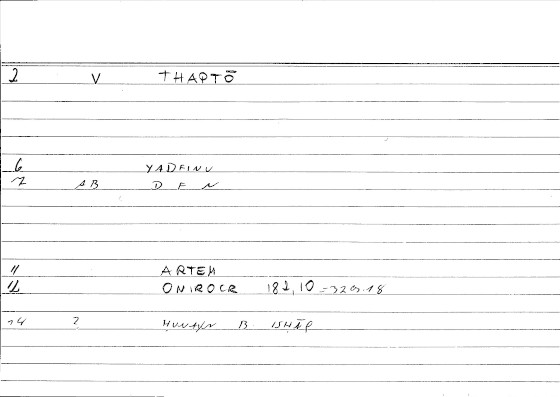 2 V THAPTŌ
6 YADFINU
7 AB D F N
11 ARTEM
12 ONIROCR 182,10 = 329.18
14 2 HUNAYN B ISḤĀQ